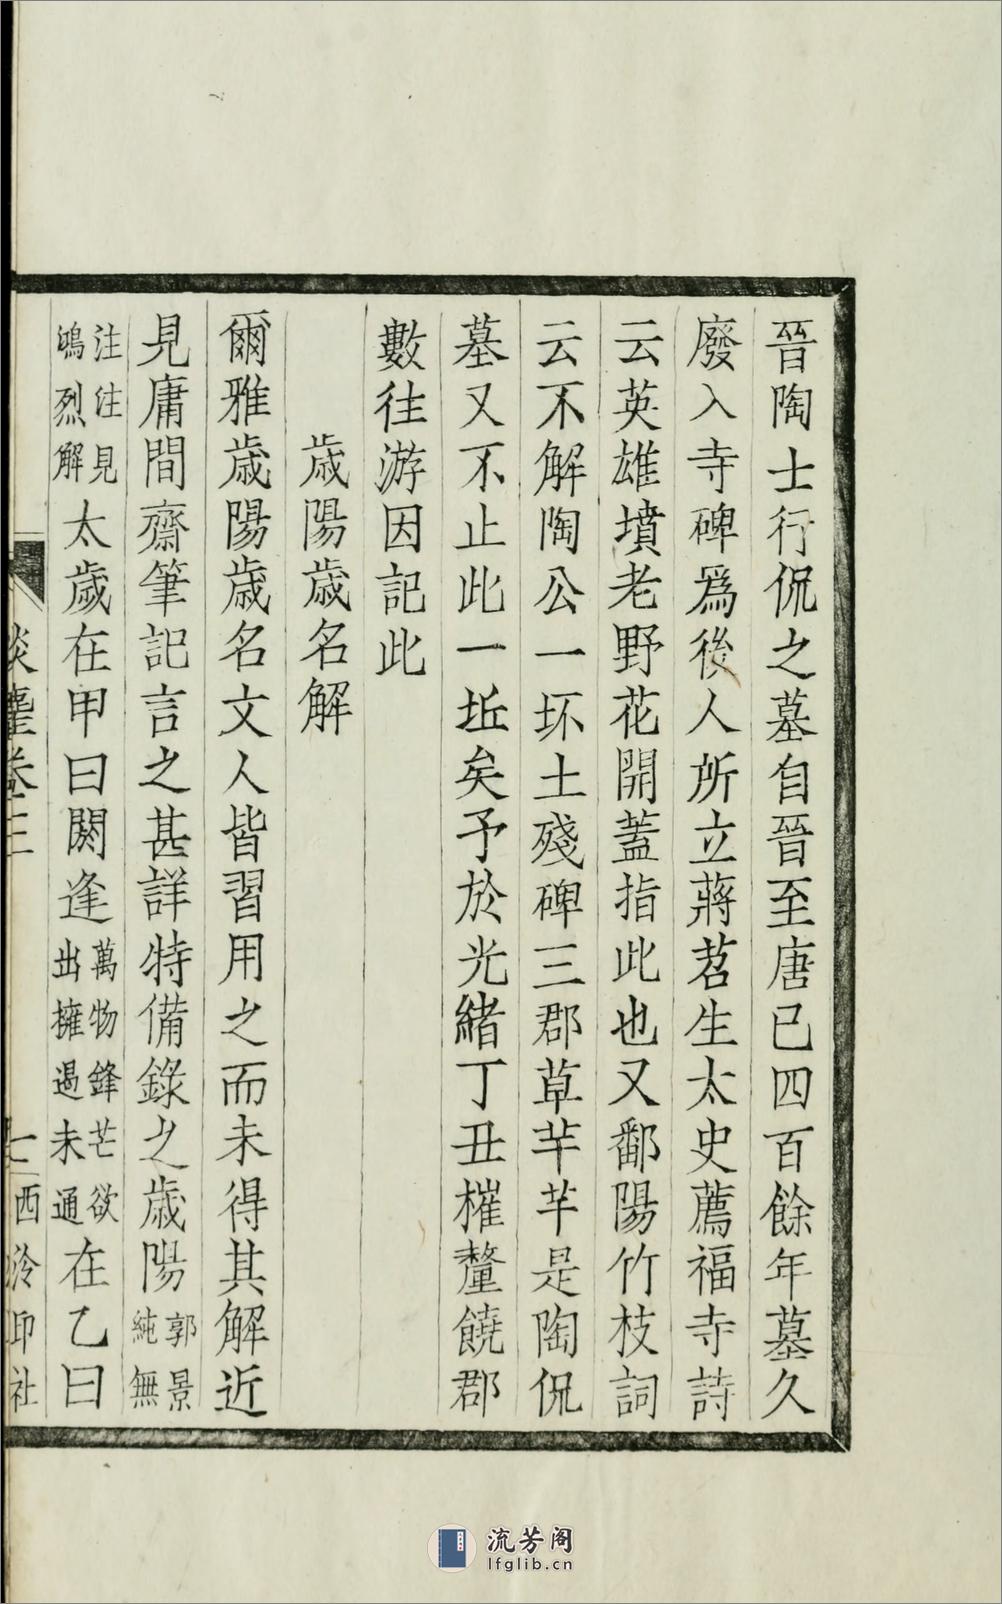 晉陶士行侃之墓自晉至唐已四百餘年墓久
廢入寺碑爲後人所立蔣苕生太史薦福寺詩
云英雄墳老野花開蓋指此也又鄱陽竹枝詞
云不解陶公一坏土殘碑三郡草芊芊是陶侃
墓又不止此一坵矣予於光緒丁丑榷釐饒郡
數往游因記此
歲陽歲名解
爾雅歲陽歲名文人皆習用之而未得其解近
見庸間齋筆記言之甚詳特備錄之歲陽郭景純無
注注見鴻烈解太歲在甲曰閼逢萬物鋒芒欲出擁遏未通在乙曰
談麈卷三
七
西泠印社
流芳阁
lfglib.cn